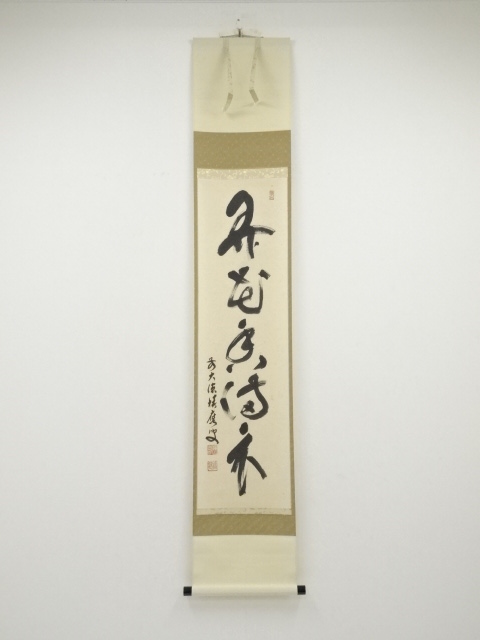 弄花香満衣
前大徳積應叟